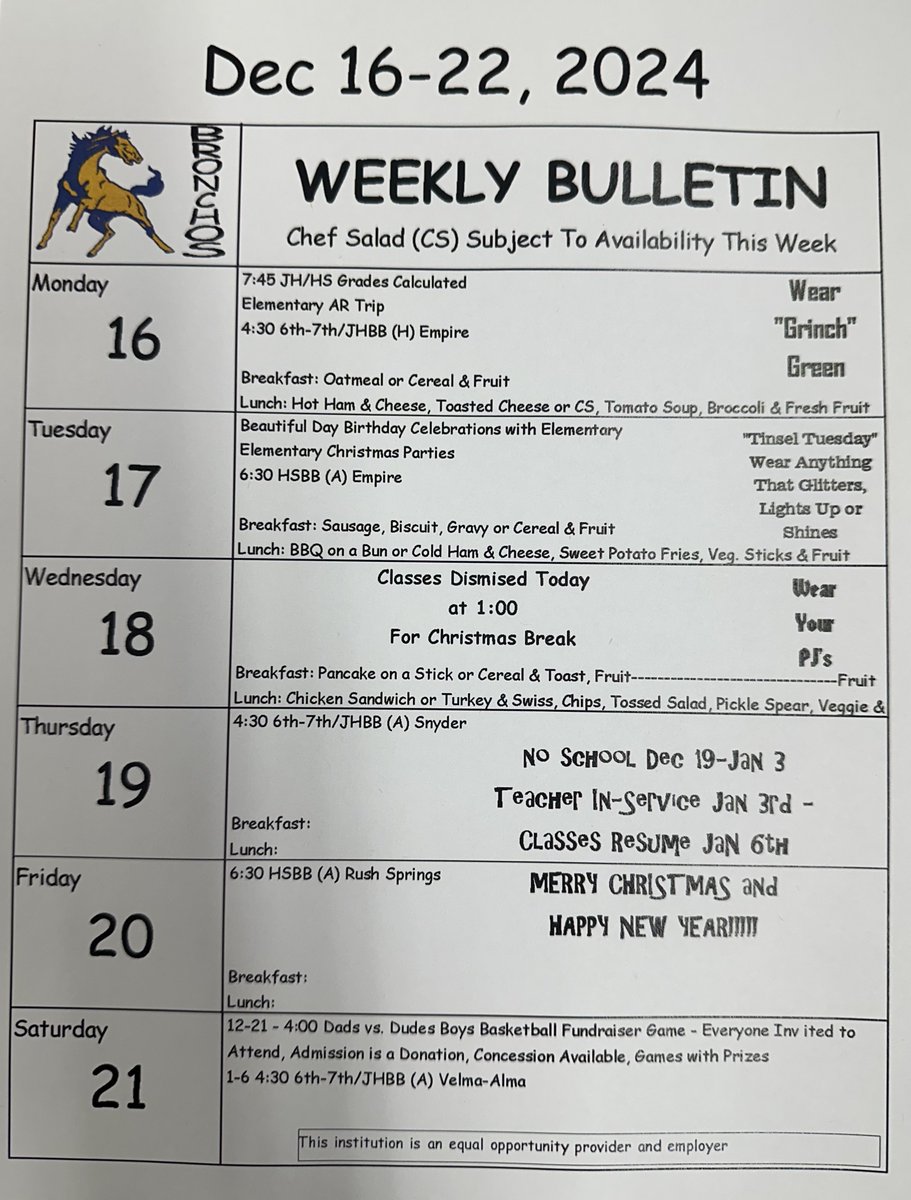 Dec 16-22, 2024
BRONCHOS
WEEKLY BULLETIN
Chef Salad (CS) Subject To Availability This Week
Monday
16
7:45 JH/HS Grades Calculated
Elementary AR Trip
4:30 6th-7th/JHBB (H) Empire
Breakfast: Oatmeal or Cereal & Fruit
Lunch: Hot Ham & Cheese, Toasted Cheese or CS, Tomato Soup, Broccoli & Fresh Fruit
Wear
"Grinch"
Green
Tuesday
17
Beautiful Day Birthday Celebrations with Elementary
Elementary Christmas Parties
6:30 HSBB (A) Empire
Breakfast: Sausage, Biscuit, Gravy or Cereal & Fruit
Lunch: BBQ on a Bun or Cold Ham & Cheese, Sweet Potato Fries, Veg. Sticks & Fruit
"Tinsel Tuesday"
Wear Anything
That Glitters,
Lights Up or
Shines
Wednesday
18
Classes Dismised Today
at 1:00
For Christmas Break
Breakfast: Pancake on a Stick or Cereal & Toast, Fruit-------------------------------Fruit
Lunch: Chicken Sandwich or Turkey & Swiss, Chips, Tossed Salad, Pickle Spear, Veggie &
Wear
Your
PJ's
Thursday
19
4:30 6th-7th/JHBB (A) Snyder
Breakfast:
Lunch:
No School Dec 19-Jan 3
Teacher In-Service Jan 3rd -
Classes Resume Jan 6th
Friday
20
6:30 HSBB (A) Rush Springs
Breakfast:
Lunch:
MERRY CHRISTMAS and
HAPPY NEW YEAR!!!!!
Saturday
21
12-21 - 4:00 Dads vs. Dudes Boys Basketball Fundraiser Game - Everyone Inv ited to
Attend, Admission is a Donation, Concession Available, Games with Prizes
1-6 4:30 6th-7th/JHBB (A) Velma-Alma
This institution is an equal opportunity provider and employer